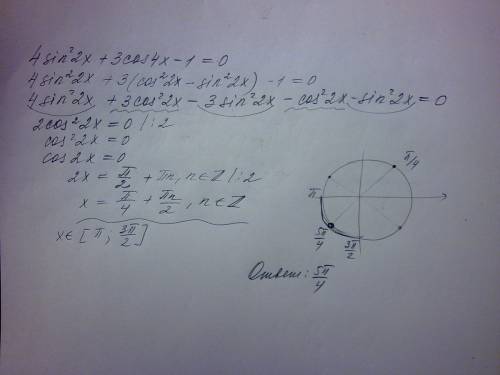 4sin²2x + 3cos4x - 1 = 0
4sin²2x + 3(cos²2x - sin²2x) - 1 = 0
4sin²2x + 3cos²2x - 3sin²2x - cos²2x - sin²2x = 0
2cos²2x = 0 /: 2
cos²2x = 0
cos2x = 0
2x = π/2 + πn, n∈ℤ /: 2
x = π/4 + πn/2, n∈ℤ
x∈[π; 3π/2]
π/4
π
5π/4
3π/2
Ответ: 5π/4